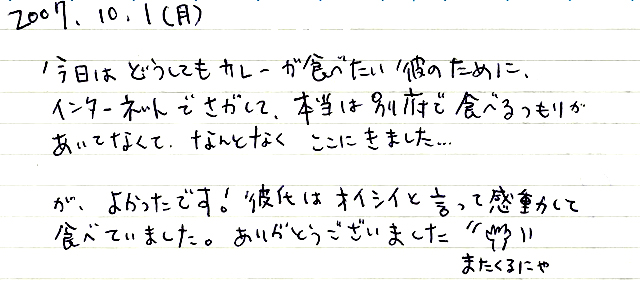 2007.10.1(月)
今日はどうしてもカレーが食べたい彼のために、
インターネットでさがして、本当は別府で食べるつもりが
あいてなくて、なんとなくここにきました…
が、よかったです!彼氏はオイシイと言って感動して
食べていました。ありがとうございました
またくるにゃ